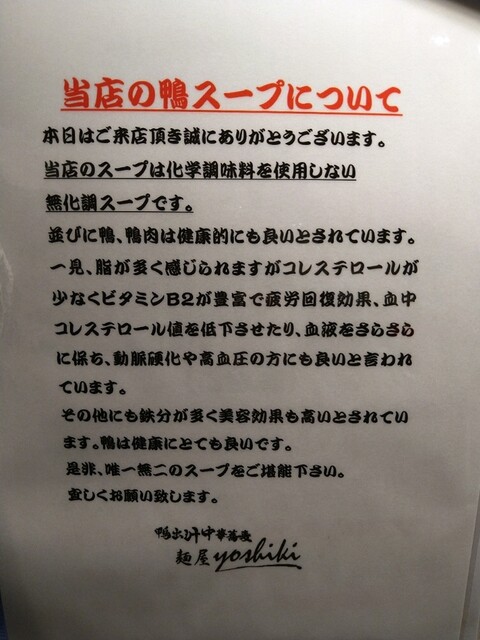 当店の鴨スープについて
本日はご来店頂き誠にありがとうございます。
当店のスープは化学調味料を使用しない
無化調スープです。
並びに鴨、鴨肉は健康的にも良いとされています。
一見、脂が多く感じられますがコレステロールが
少なくビタミンB2が豊富で疲労回復効果、血中
コレステロール値を低下させたり、血液をさらさら
に保ち、動脈硬化や高血圧の方にも良いと言われ
ています。
その他にも鉄分が多く美容効果も高いとされてい
ます。鴨は健康にとても良いです。
是非、唯一無二のスープをご堪能下さい。
宜しくお願い致します。
鴨出汁中華蕎麦
麺屋yoshiki